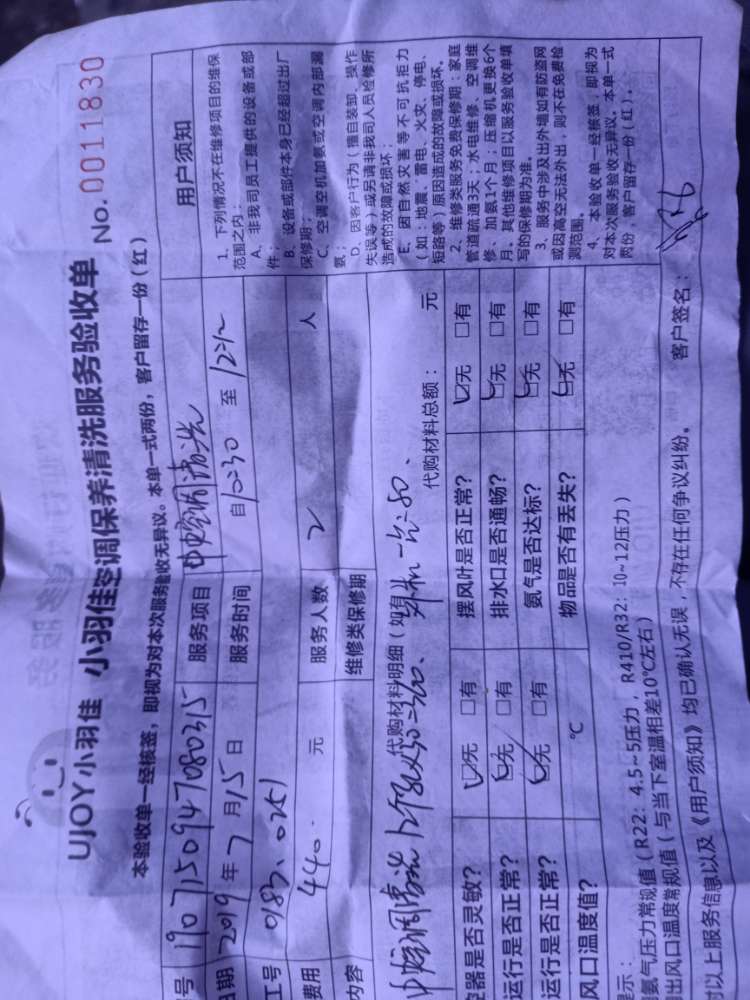 UJOY小羽佳 小羽佳空调保养清洗服务验收单
No. 0011830
本验收单一经核签，即视为对本次服务验收无异议。本单一式两份，客户留存一份（红）
号 1907150947080315 服务项目 中央空调清洗
日期 2019 年 7 月 15 日 服务时间 自 10:30 至
工号 0183、0251
费用 440 元 服务人数 2 人
内容 维修类保修期
代购材料明细（如有
中央空调清洗
代购材料总额： 元
控器是否灵敏？ ☑无 □有 摆风叶是否正常？ ☑无 □有
运行是否正常？ ☑无 □有 排水口是否通畅？ ☑无 □有
运行是否正常？ ☑无 □有 氨气是否达标？ ☑无 □有
风口温度值？ ℃ 物品是否有丢失？ ☑无 □有
用户须知
1、下列情况不在维修项目的维保
范围之内：
A、非我司员工提供的设备或部
件；
B、设备或部件本身已经超过出厂
保修期；
C、空调空机加氨或空调内部漏
氨；
D、因客户行为（擅自装卸、操作
失误等）或另请非我司人员检修所
造成的故障或损坏；
E、因自然灾害等不可抗拒力
（如：地震、雷电、火灾、停电、
短路等）原因造成的故障或损坏。
2、维修类服务免费保修期：家庭
管道疏通3天；水电维修、空调维
修、加氨1个月；压缩机更换6个
月。其他维修项目以服务验收单填
写的保修期为准。
3、服务中涉及出外墙如有防盗网
或因高空无法外出，则不在免费检
测范围。
4、本验收单一经核签，即视为
对本次服务验收无异议。本单一式
两份，客户留存一份（红）。
示：
氨气压力常规值（R22：4.5~5压力，R410/R32：10~12压力）
出风口温度常规值（与当下室温相差10℃左右）
对以上服务信息以及《用户须知》均已确认无误，不存在任何争议纠纷。 客户签名：